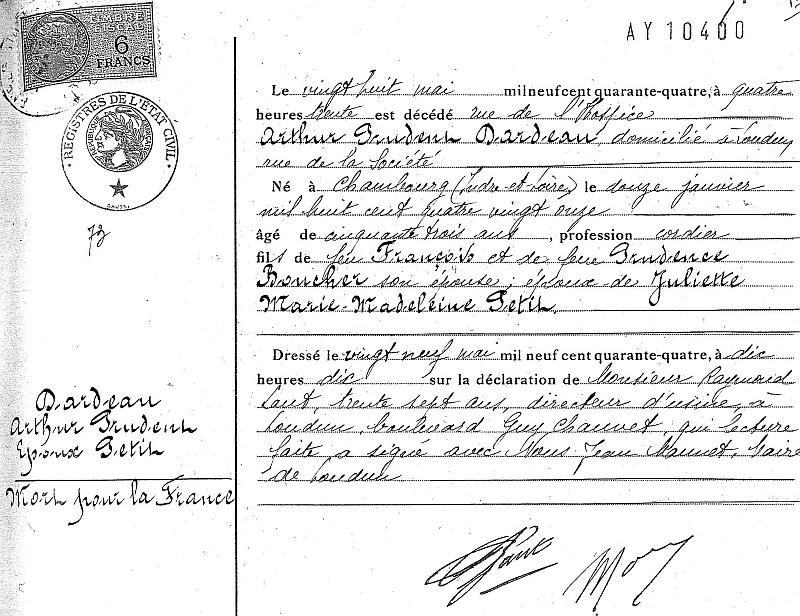 AY 10400
TIMBRE
FISCAL
6
FRANCS
REGISTRES DE L'ETAT CIVIL
73
Le vingt huit mai mil neuf cent quarante-quatre, à quatre
heures trente est décédé rue de l'Hospice
Arthur Prudent Dardeau, domicilié à Loudun
rue de la Société
Né à Chambourg (Indre-et-Loire) le douze janvier
mil huit cent quatre vingt onze
âgé de cinquante trois ans, profession cordier
fils de feu François et de feue Prudence
Boucher son épouse ; époux de Juliette
Marie-Madeleine Petit.
Dressé le vingt neuf mai mil neuf cent quarante-quatre, à dix
heures dix sur la déclaration de Monsieur Raymond
trente sept ans, directeur d'usine, à
Loudun, boulevard Guy Chauvet, qui lecture
faite a signé avec Nous, Jean Maire
de Loudun
Dardeau
Arthur Prudent
Epoux Petit
Mort pour la France